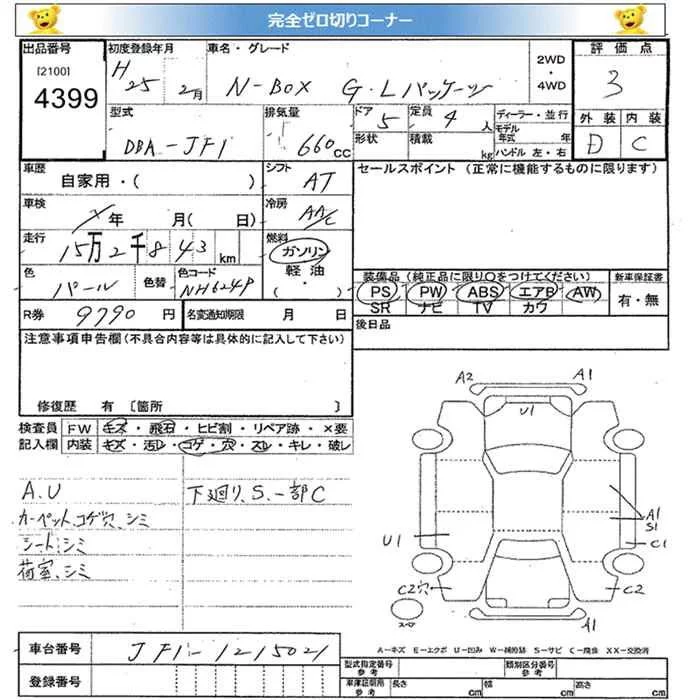 完全ゼロ切りコーナー
出品番号 初度登録年月 車名・グレード 2WD・4WD 評価点
[2100] 4399 H25 2月 N-BOX G・Lパッケージ 3
型式 排気量 ドア 5 定員 4人 ディーラー・並行 外装 内装
DBA-JF1 660cc 形状 積載 kg モデル年式 年 ハンドル 左・右 D C
車歴 自家用・( ) シフト AT セールスポイント (正常に機能するものに限ります)
車検 年 月( 日) 冷房 AAC
走行 15万2千843km 燃料 ガソリン 軽油 (・)
色 パール 色替 色コード NH624P
装備品 (純正品に限り○をつけてください) 新車保証書
PS PW ABS エアB AW 有・無
SR ナビ TV カワ
R券 9790円 名変通知期限 月 日 後日品
注意事項申告欄 (不具合内容等は具体的に記入して下さい)
修復歴 有 〔箇所 〕
検査員 FW キズ・飛石・ヒビ割・リペア跡・×要
記入欄 内装 キズ・汚レ・コゲ・穴・スレ・キレ・破レ
A.U 下廻り、S.一部C
カーペット、コゲ穴、シミ
シート、シミ
荷室、シミ
A2 A1
U1
A1
S1
U1 C1
C2穴 C2
スペア
A1
A-キズ E-エクボ U-凹み W-補修跡 S-サビ C-腐食 XX-交換済
車台番号 JF1-1215021
登録番号
型式指定番号 参考 類別区分番号
車庫証明用 参考 長さ cm 幅 cm 高さ cm